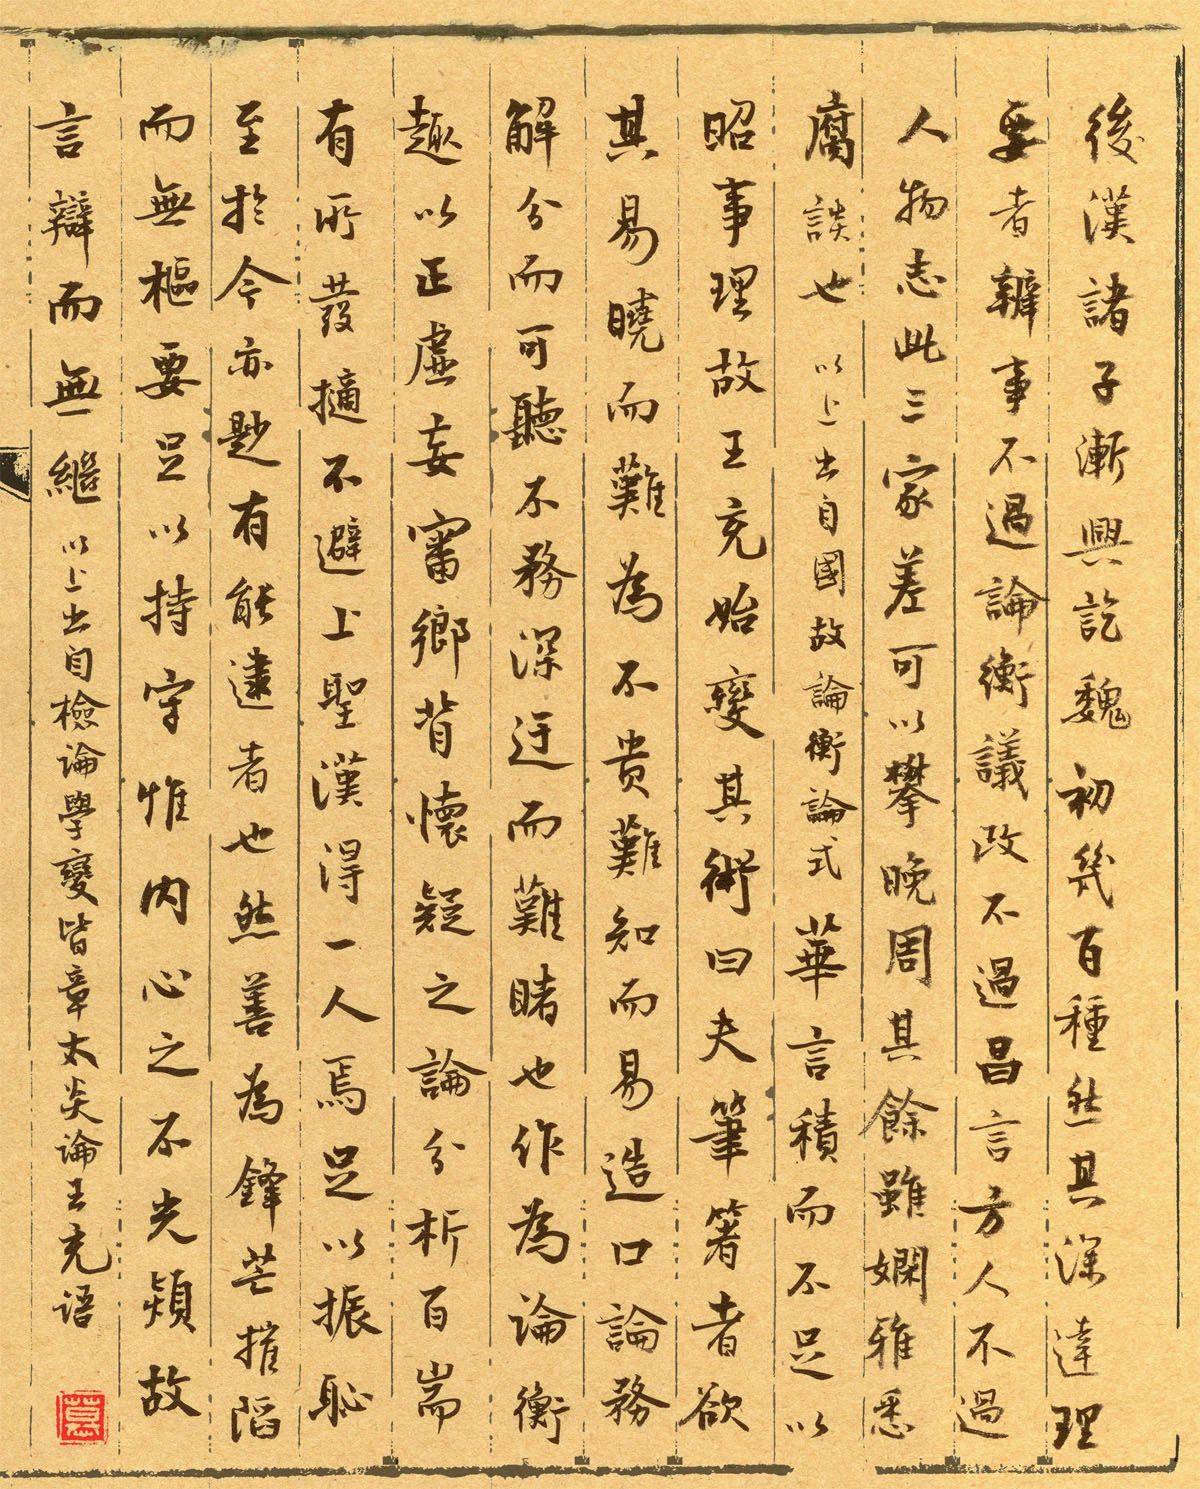 後漢諸子漸興訖魏初幾百種然其深達理
要者辨事不過論衡議政不過昌言方人不過
人物志此三家差可以攀晚周其餘雖嫻雅悉
腐談也以上出自國故論衡論式華言積而不足以
昭事理故王充始變其術曰夫筆箸者欲
其易曉而難為不貴難知而易造口論務
解分而可聽不務深迂而難睹也作為論衡
趣以正虛妄審鄉背懷疑之論分析百耑
有所發擿不避上聖漢得一人焉足以振恥
至於今亦尟有能逮者也然善為鋒芒摧陷
而無樞要足以持守惟內心之不光熲故
言辯而無繼以上出自檢論學變皆章太炎論王充語